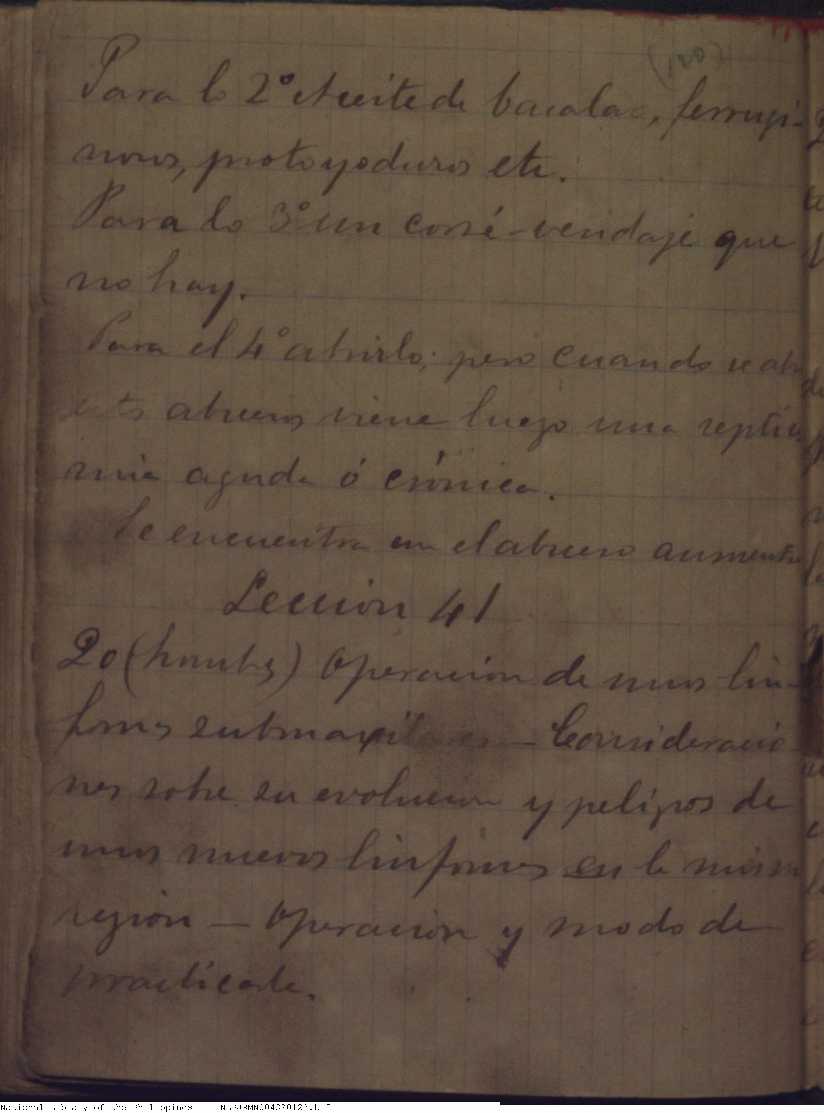 (120)
Para lo 2º Aceite de bacalao, ferrugi-
nosos, protoyoduros etc.
Para lo 3º un corsé-vendaje que
no hay.
Para el 4º abrirlo; pero cuando se abr
estos abscesos viene luego una septice
mia aguda ó crónica.
Se encuentra en el absceso aumenta
Lección 41
20 (hombre) Operación de unos lin-
fomas submaxilares — Consideracio
nes sobre su evolucion y peligros de
unos nuevos linfomas en la misma
región — Operacion y modo de
practicarla.
National Library of the Philippines